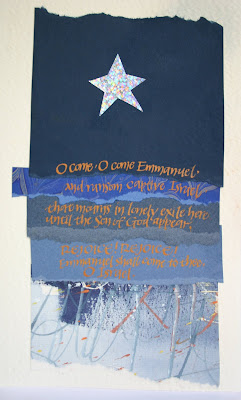 O come, O come Emmanuel,
and ransom captive Israel
that mourns in lonely exile here
until the son of God appear,
Rejoice! Rejoice!
Emmanuel shall come to thee,
O Israel